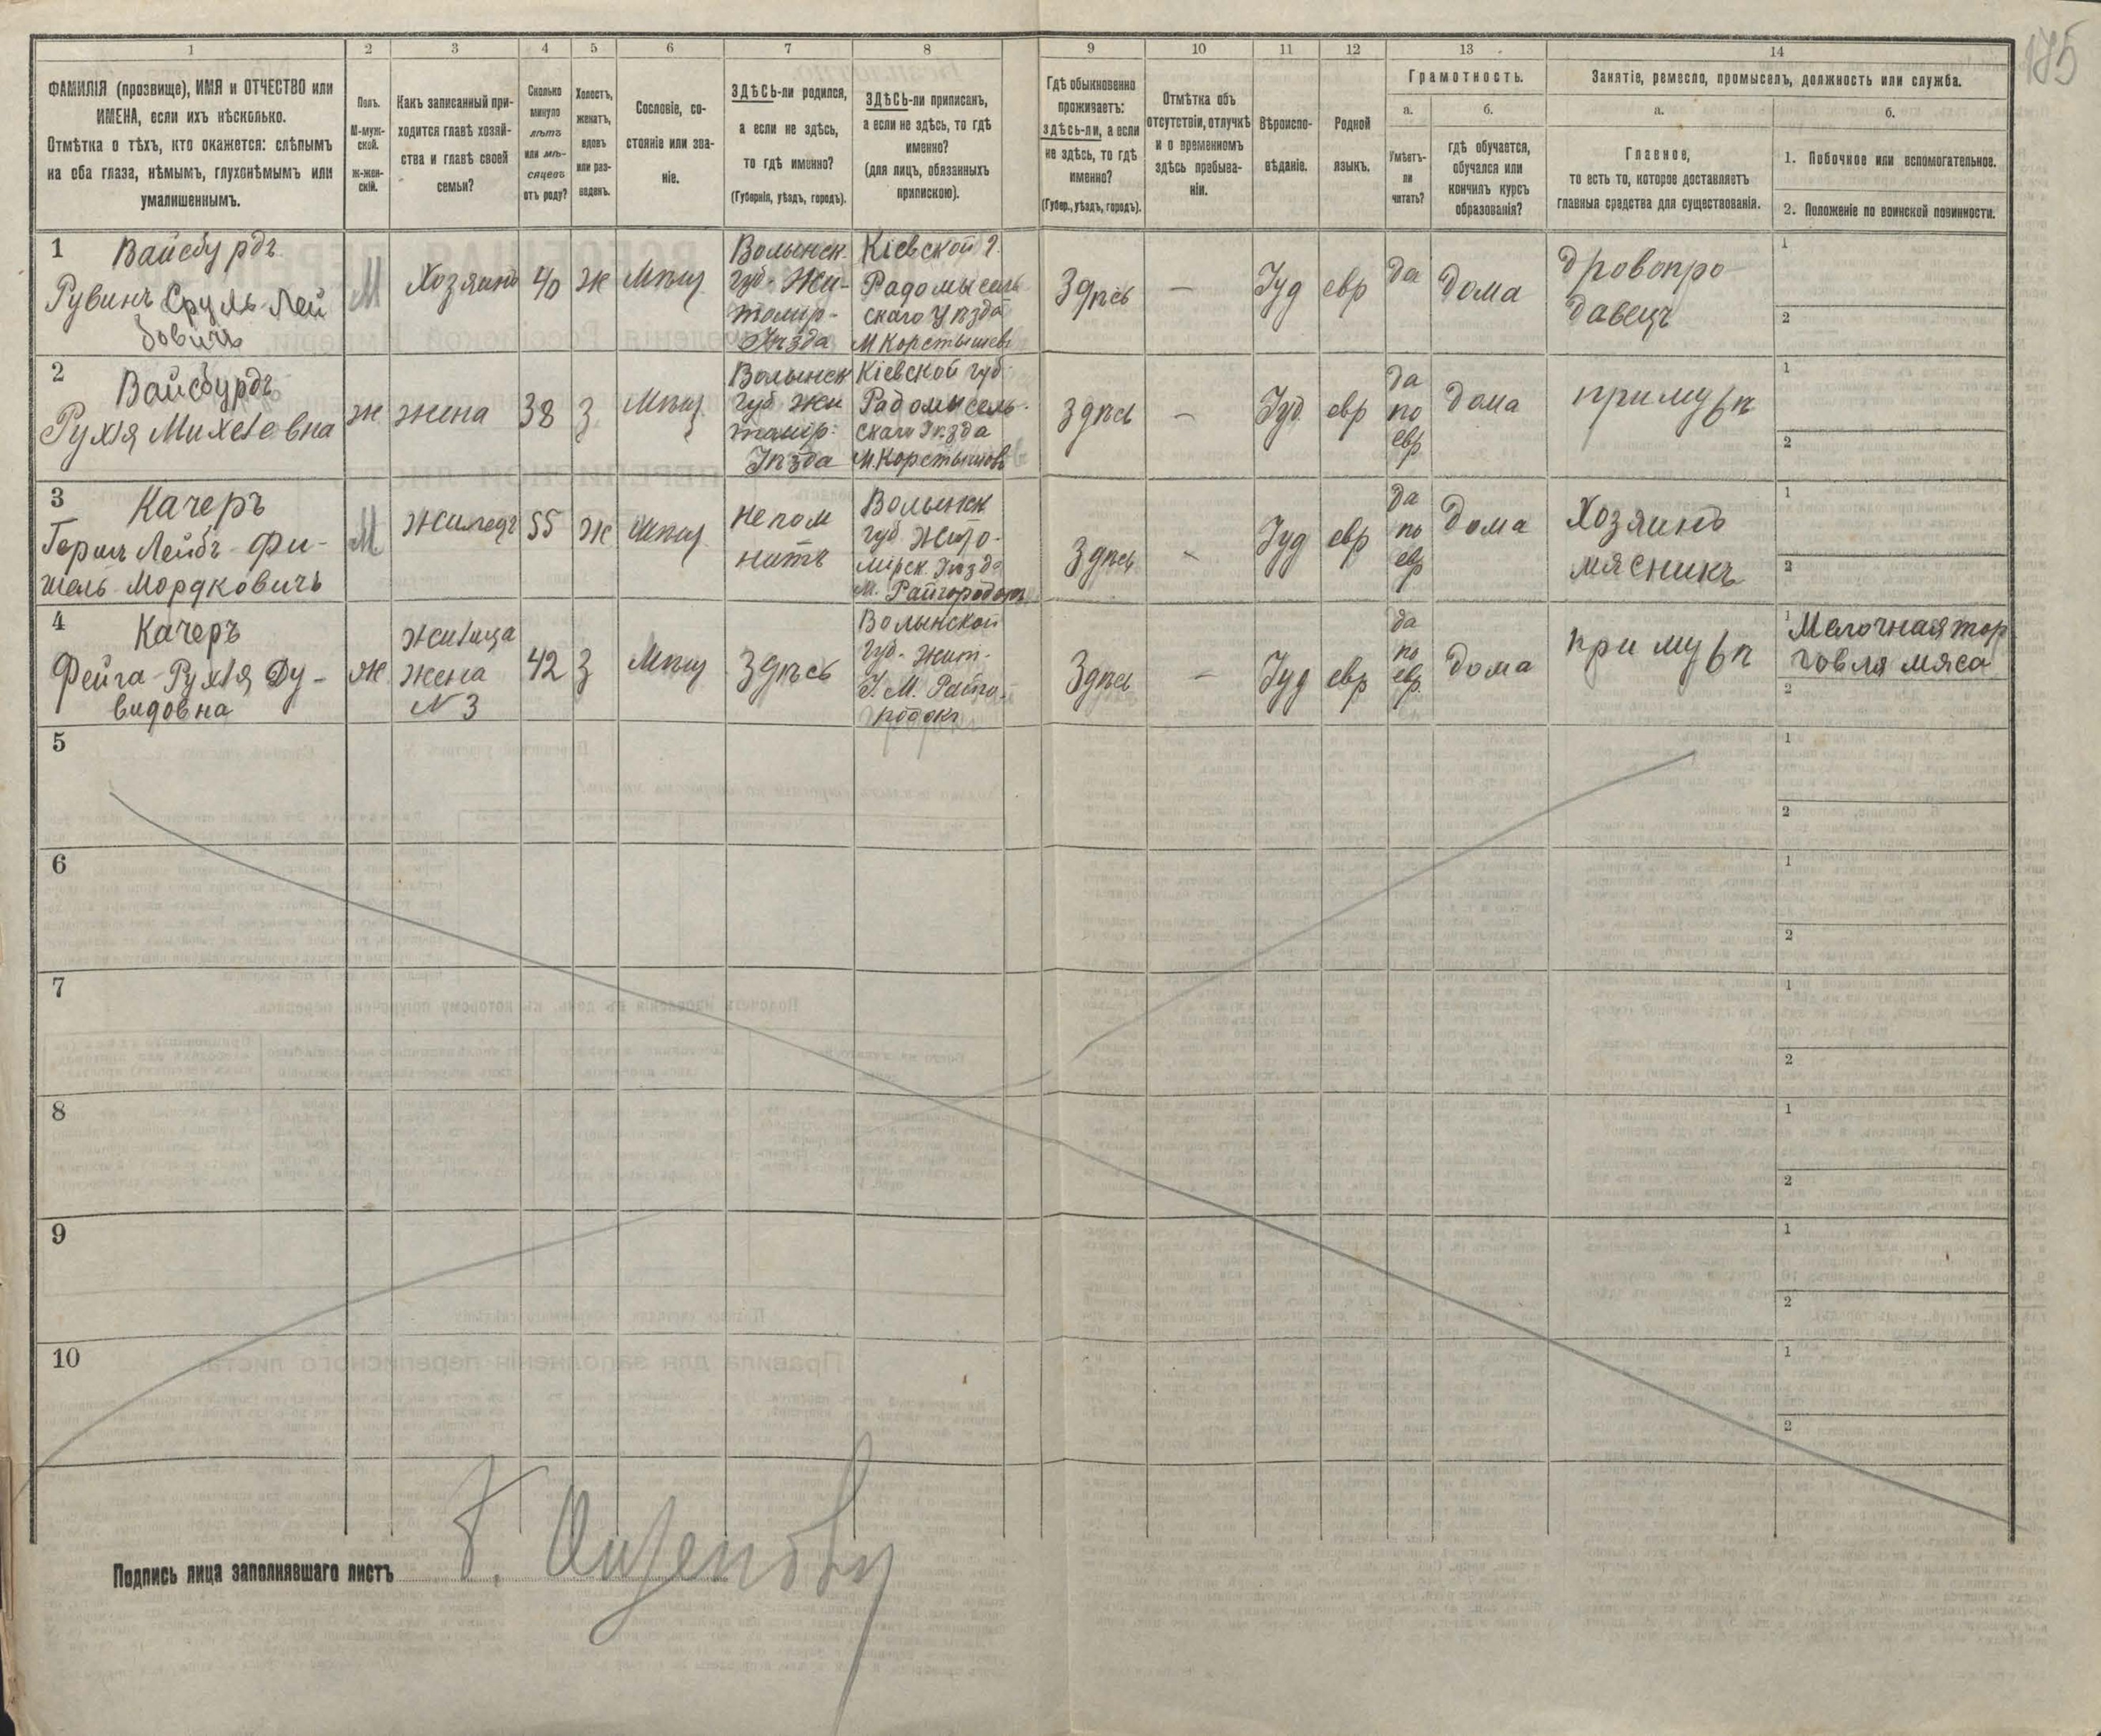 175
1 2 3 4 5 6 7 8 9 10 11 12 13 14
ФАМИЛІЯ (прозвище), ИМЯ и ОТЧЕСТВО или
ИМЕНА, если ихъ нѣсколько.
Отмѣтка о тѣхъ, кто окажется: слѣпымъ
на оба глаза, нѣмымъ, глухонѣмымъ или
умалишеннымъ.
Полъ.
М-муж-
ской.
Ж-жен-
скій.
Какъ записанный при-
ходится главѣ хозяй-
ства и главѣ своей
семьи?
Сколько
минуло
лѣтъ
или мѣ-
сяцевъ
отъ роду?
Холостъ,
женатъ,
вдовъ
или раз-
веденъ.
Сословіе, со-
стояніе или зва-
ніе.
ЗДѢСЬ-ли родился,
а если не здѣсь,
то гдѣ именно?
(Губернія, уѣздъ, городъ).
ЗДѢСЬ-ли приписанъ,
а если не здѣсь, то гдѣ
именно?
(для лицъ, обязанныхъ
припискою).
Гдѣ обыкновенно
проживаетъ:
здѣсь-ли, а если
не здѣсь, то гдѣ
именно?
(Губер., уѣздъ, городъ).
Отмѣтка объ
отсутствіи, отлучкѣ
и о временномъ
здѣсь пребыва-
ніи.
Вѣроиспо-
вѣданіе.
Родной
языкъ.
Грамотность.
а.
Умѣетъ-
ли
читать?
б.
гдѣ обучается,
обучался или
кончилъ курсъ
образованія?
Занятіе, ремесло, промыселъ, должность или служба.
а.
Главное,
то есть то, которое доставляетъ
главныя средства для существованія.
б.
1. Побочное или вспомогательное.
2. Положеніе по воинской повинности.
1
Вайсбурдъ
Рувинъ Сруль-Лей
бовичъ
М
Хозяинъ
40
ж
Мѣщ
Волынск.
губ. Жи-
томир-
Уѣзда
Кіевской г.
Радомысель
скаго Уѣзда
М Коростышевъ
Здѣсь
—
Іуд
евр
да
дома
дровопро-
давецъ
1
2
2
Вайсбурдъ
Рухля Михелевна
ж
жена
38
З
Мѣщ
Волынск
губ Жи
томир.
Уѣзда
Кіевской губ.
Радомысель-
скаго Уѣзда
М. Коростышовъ
Здѣсь
—
Іуд.
евр
да
по
евр
дома
при мужѣ
1
2
3
Качеръ
Гершъ Лейбъ-Фи-
шель Мордковичъ
М
Жилецъ
55
ж
Мѣщ
не пом
нитъ
Волынск
губ. Жито-
мірск. Уѣзда
М. Райгородокъ
Здѣсь
-
Іуд
евр
да
по
евр
дома
Хозяинъ
мясникъ
1
2
4
Качеръ
Фейга-Рухля Ду-
видовна
ж
жилица
жена
№ 3
42
З
Мѣщ
Здѣсь
Волынской
губ. Жит.
У. М. Райго-
родокъ
Здѣсь
—
Іуд
евр
да
по
евр.
дома
при мужѣ
1
Мелочная тор
говля мяса
2
5
1
2
6
1
2
7
1
2
8
1
2
9
1
2
10
1
2
Подпись лица заполнявшаго листъ